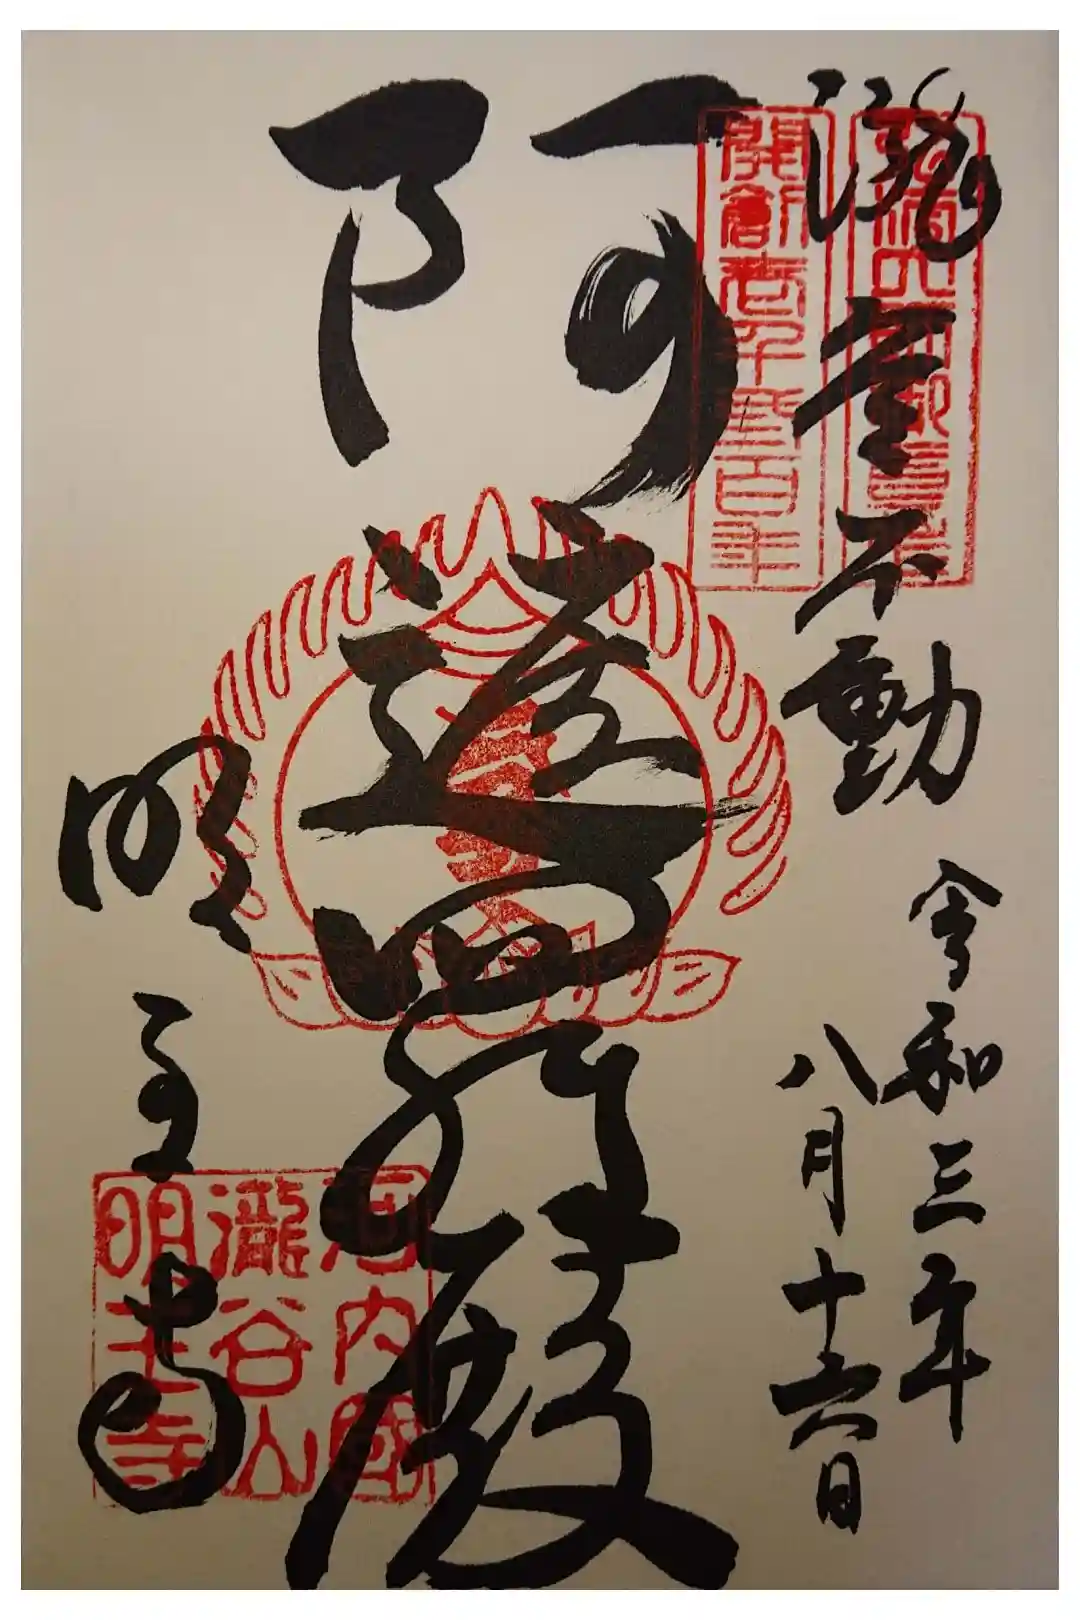 瀧谷不動
令和三年
八月十六日
開創壱千弐百年
阿遮羅殿
明王寺
河内國
瀧谷山
明王寺